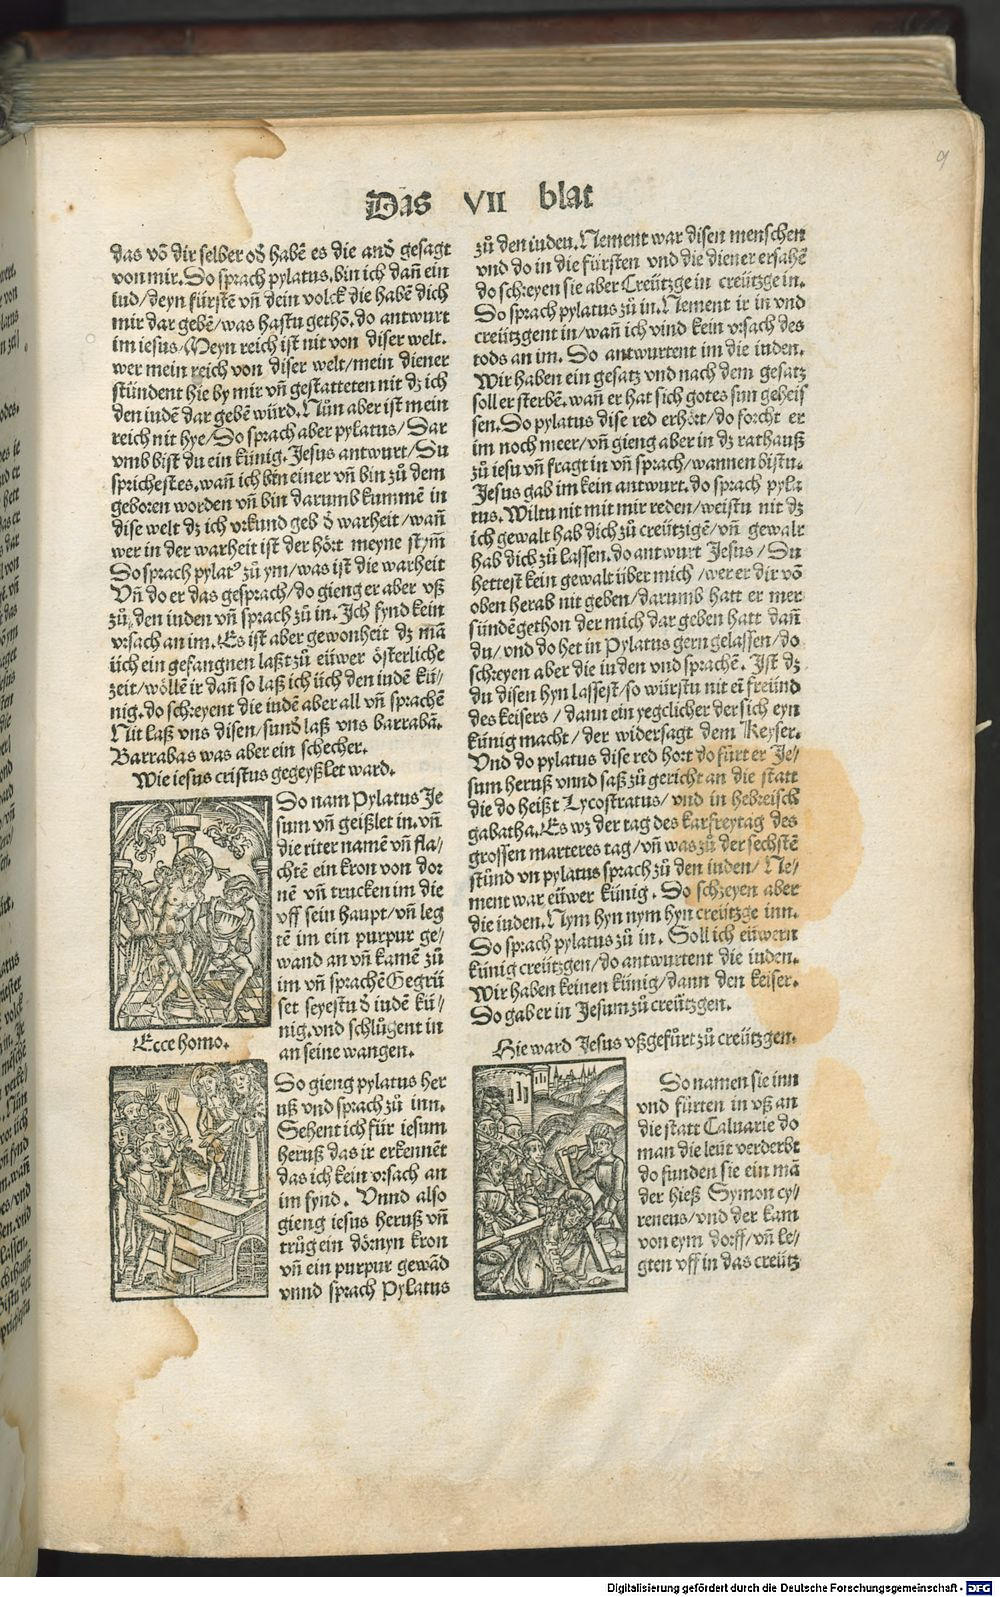 Das VII blat
das võ dir selber od̃ habẽ es die and̃ gesagt
von mir. So sprach pylatus. bin ich dañ ein
iud/deyn fürstẽ vñ dein volck die habẽ dich
mir dar gebẽ/was hastu gethõ. do antwurt
im iesus/Meyn reich ist nit von diser welt.
wer mein reich von diser welt/mein diener
stündent hie by mir vñ gestatteten nit dz ich
den iudẽ dar gebẽ würd. Nůn aber ist mein
reich nit hye/So sprach aber pylatus/Dar
vmb bist du ein künig. Jesus antwurt/Du
sprichest es. wañ ich bin einer vñ bin zů dem
geboren worden vñ bin darumb kummẽ in
dise welt dz ich vrkund geb d̃ warheit/wañ
wer in der warheit ist der hört meyne stym̃
So sprach pylatꝰ zů ym/was ist die warheit
Vñ do er das gesprach/do gieng er aber vß
zů den iuden vñ sprach zů in. Ich fynd kein
vrsach an im. Es ist aber gewonheit dz mã
üch ein gefangnen laßt zů eüwer österliche
zeit/wöllẽ ir dañ so laß ich üch den iudẽ kü-
nig. do schreyent die iudẽ aber all vñ sprachẽ
Nit laß vns disen/sund̃ laß vns barrabã.
Barrabas was aber ein schecher.
Wie iesus cristus gegeyßlet ward.
So nam Pylatus Je
sum vñ geißlet in. vñ
die riter namẽ vñ fla/
chtẽ ein kron von dor
nẽ vñ trucken im die
vff sein haupt/vñ leg
tẽ im ein purpur ge/
wand an vñ kamẽ zů
im vñ sprachẽ Gegrü
set seyestu d̃ iudẽ kü/
nig. vnd schlůgent in
an seine wangen.
Ecce homo.
So gieng pylatus her
uß vnd sprach zů inn.
Sehent ich für iesum
heruß das ir erkennẽt
das ich kein vrsach an
im fynd. Vnnd also
gieng iesus heruß vñ
trůg ein dörnyn kron
vñ ein purpur gewãd
vnnd sprach Pylatus
zů den iuden. Nement war disen menschen
vnd do in die fürsten vnd die diener ersahẽ
do schreyen sie aber Creützge in creützge in.
So sprach pylatus zů in. Nement ir in vnd
creützgent in/wañ ich vind kein vrsach des
tods an im. So antwurtent im die iuden.
Wir haben ein gesatz vnd nach dem gesatz
soll er sterbẽ. wañ er hat sich gotes sun geheis
sen. So pylatus dise red erhört/do forcht er
im noch meer/vñ gieng aber in dz rathauß
zů iesu vñ fragt in vñ sprach/wannen bistu.
Jesus gab im kein antwurt. do sprach pyla
tus. Wiltu nit mit mir reden/weistu nit dz
ich gewalt hab dich zů creützigẽ/vñ gewalt
hab dich zů lassen. do antwurt Jesus/Du
hettest kein gewalt über mich/wer er dir võ
oben herab nit geben/darumb hatt er mer
sündẽ gethon der mich dar geben hatt dañ
du/vnd do het in Pylatus gern gelassen/do
schreyen aber die iuden vnd sprachẽ. Ist dz
du disen hyn lassest/so würstu nit eĩ freünd
des keisers/dann ein yegclicher der sich eyn
künig macht/der widersagt dem Keyser.
Vnd do pylatus dise red hort do fůrt er Je/
sum heruß vnnd saß zů gericht an die statt
die do heißt Lycostratus/vnd in hebreisch
gabatha. Es wz der tag des karfreytag des
grossen marteres tag/vñ was zů der sechstẽ
stünd vn pylatus sprach zů den iuden/Ne/
ment war eüwer künig. So schreyen aber
die iuden. Nym hyn nym hyn creützge inn.
So sprach pylatus zů in. Soll ich eüwern
künig creützgen/do antwurtent die iuden.
Wir haben keinen künig/dann den keiser.
So gab er in Jesum zů creützgen.
Hie ward Jesus vßgefürt zů creützgen.
So namen sie inn
vnd fürten in vß an
die statt Caluarie do
man die leüt verderbt
do funden sie ein mã
der hieß Symon cy/
reneus/vnd der kam
von eym dorff/vñ le/
gten vff in das creütz
Digitalisierung gefördert durch die Deutsche Forschungsgemeinschaft - DFG